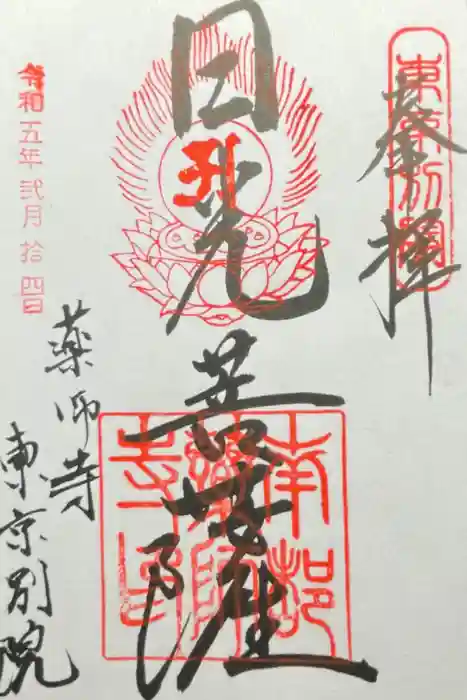 東京別院
奉拝
日光菩薩
南都
薬師
寺印
令和五年弐月拾四日
薬師寺
東京別院